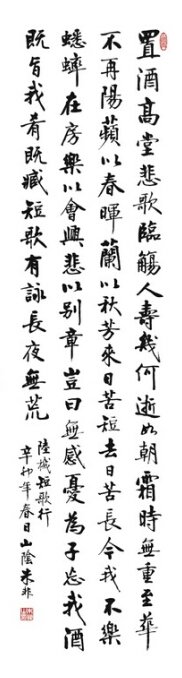 置酒高堂悲歌臨觴人壽幾何逝如朝霜時無重至華
不再陽蘋以春暉蘭以秋芳來日苦短去日苦長今我不樂
蟋蟀在房樂以會興悲以別章豈曰無感憂為子忘我酒
既旨我肴既臧短歌有詠長夜無荒
陸機短歌行
辛卯年春日山陰朱非